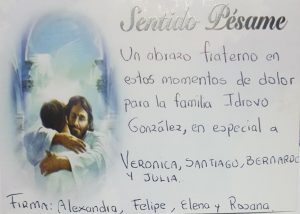 Sentido Pésame
Un abrazo fraterno en
estos momentos de dolor
para la familia Idrovo
González, en especial a
VERONICA, SANTIAGO, BERNARDO
Y JULIA.
FIRMA: Alexandra, Felipe, Elena y Roxana